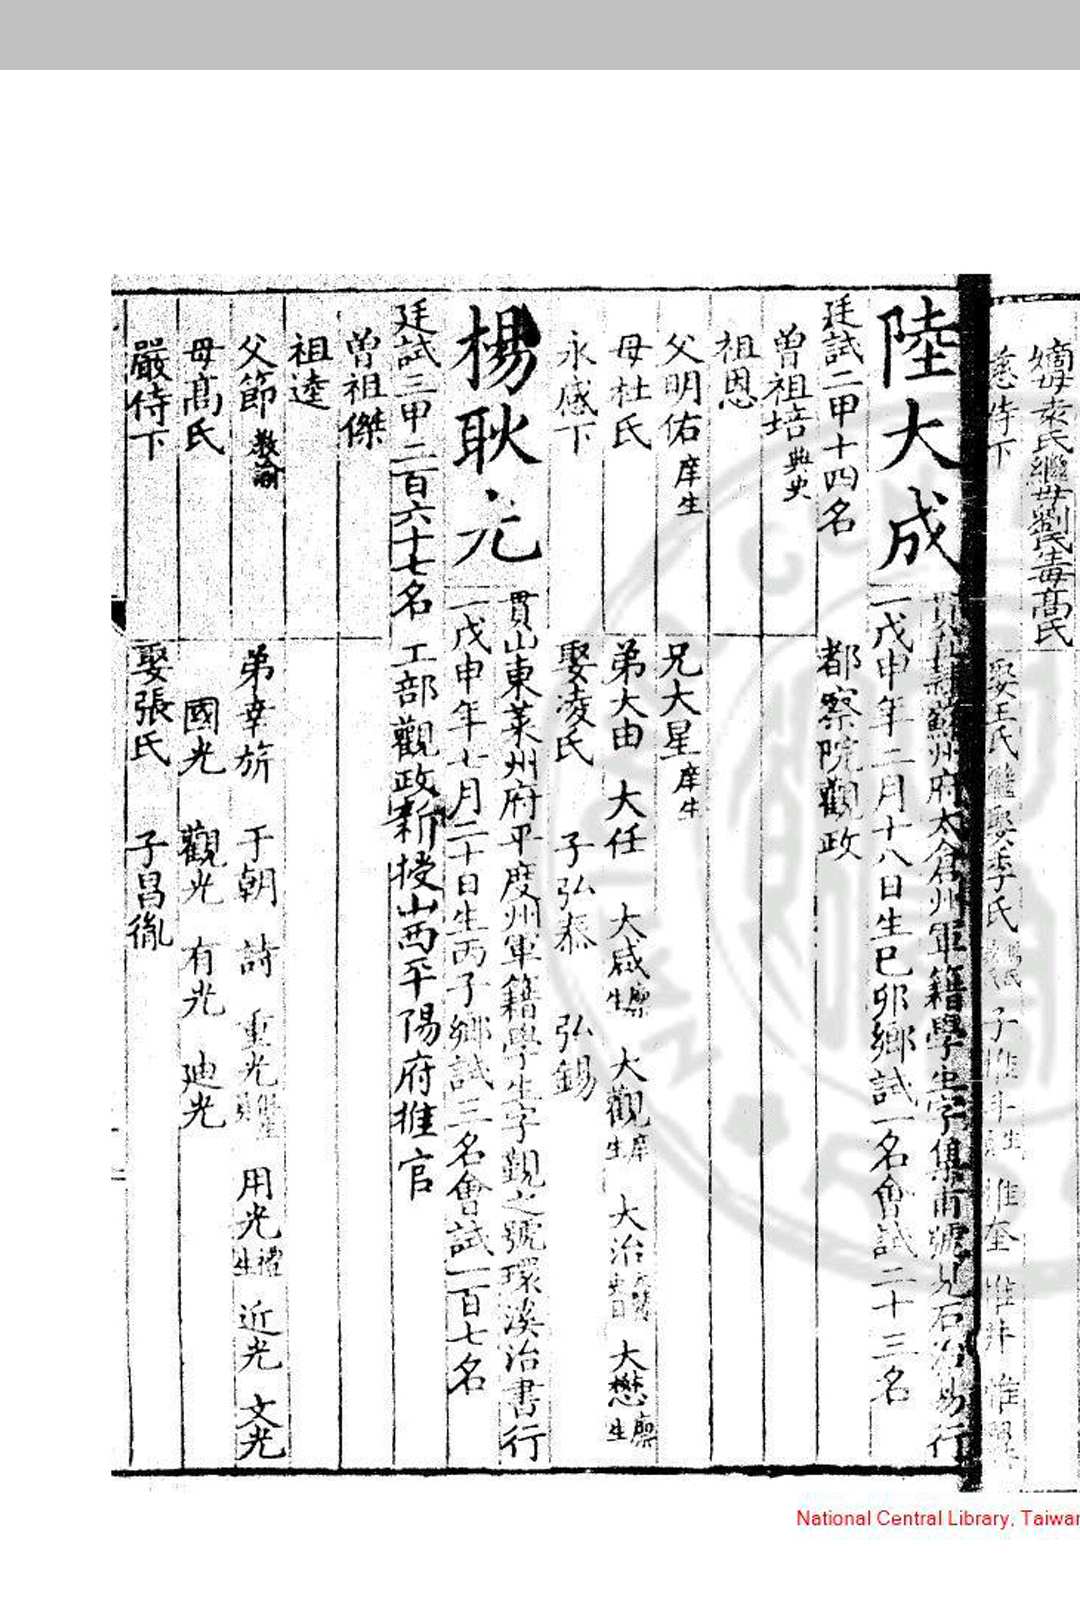 嫡母袁氏繼母劉氏毒高氏
慈侍下
娶王氏繼娶李氏
陸大成
直隸蘇州府太倉州軍籍學生字集甫號見石治易行
一戊申年二月十八日生己卯鄉試一名會試二十三名
廷試二甲十四名 都察院觀政
曾祖培典史
祖恩
父明佑庠生 兄大星庠生
母杜氏 弟大由 大任 大咸廩生 大觀庠生 大治 大懋廩生
永感下 娶凌氏 子弘泰 弘錫
楊耿光
貫山東萊州府平度州軍籍學生字覲之號環溪治書行
一戊申年七月二十日生丙子鄉試三名會試一百七名
廷試三甲二百六十七名 工部觀政新授山西平陽府推官
曾祖傑
祖逵
父節教諭 弟幸旂 于朝 詩 重光 用光禮生 近光 文光
母高氏 國光 觀光 有光 迪光
嚴侍下 娶張氏 子昌胤
National Central Library, Taiwan